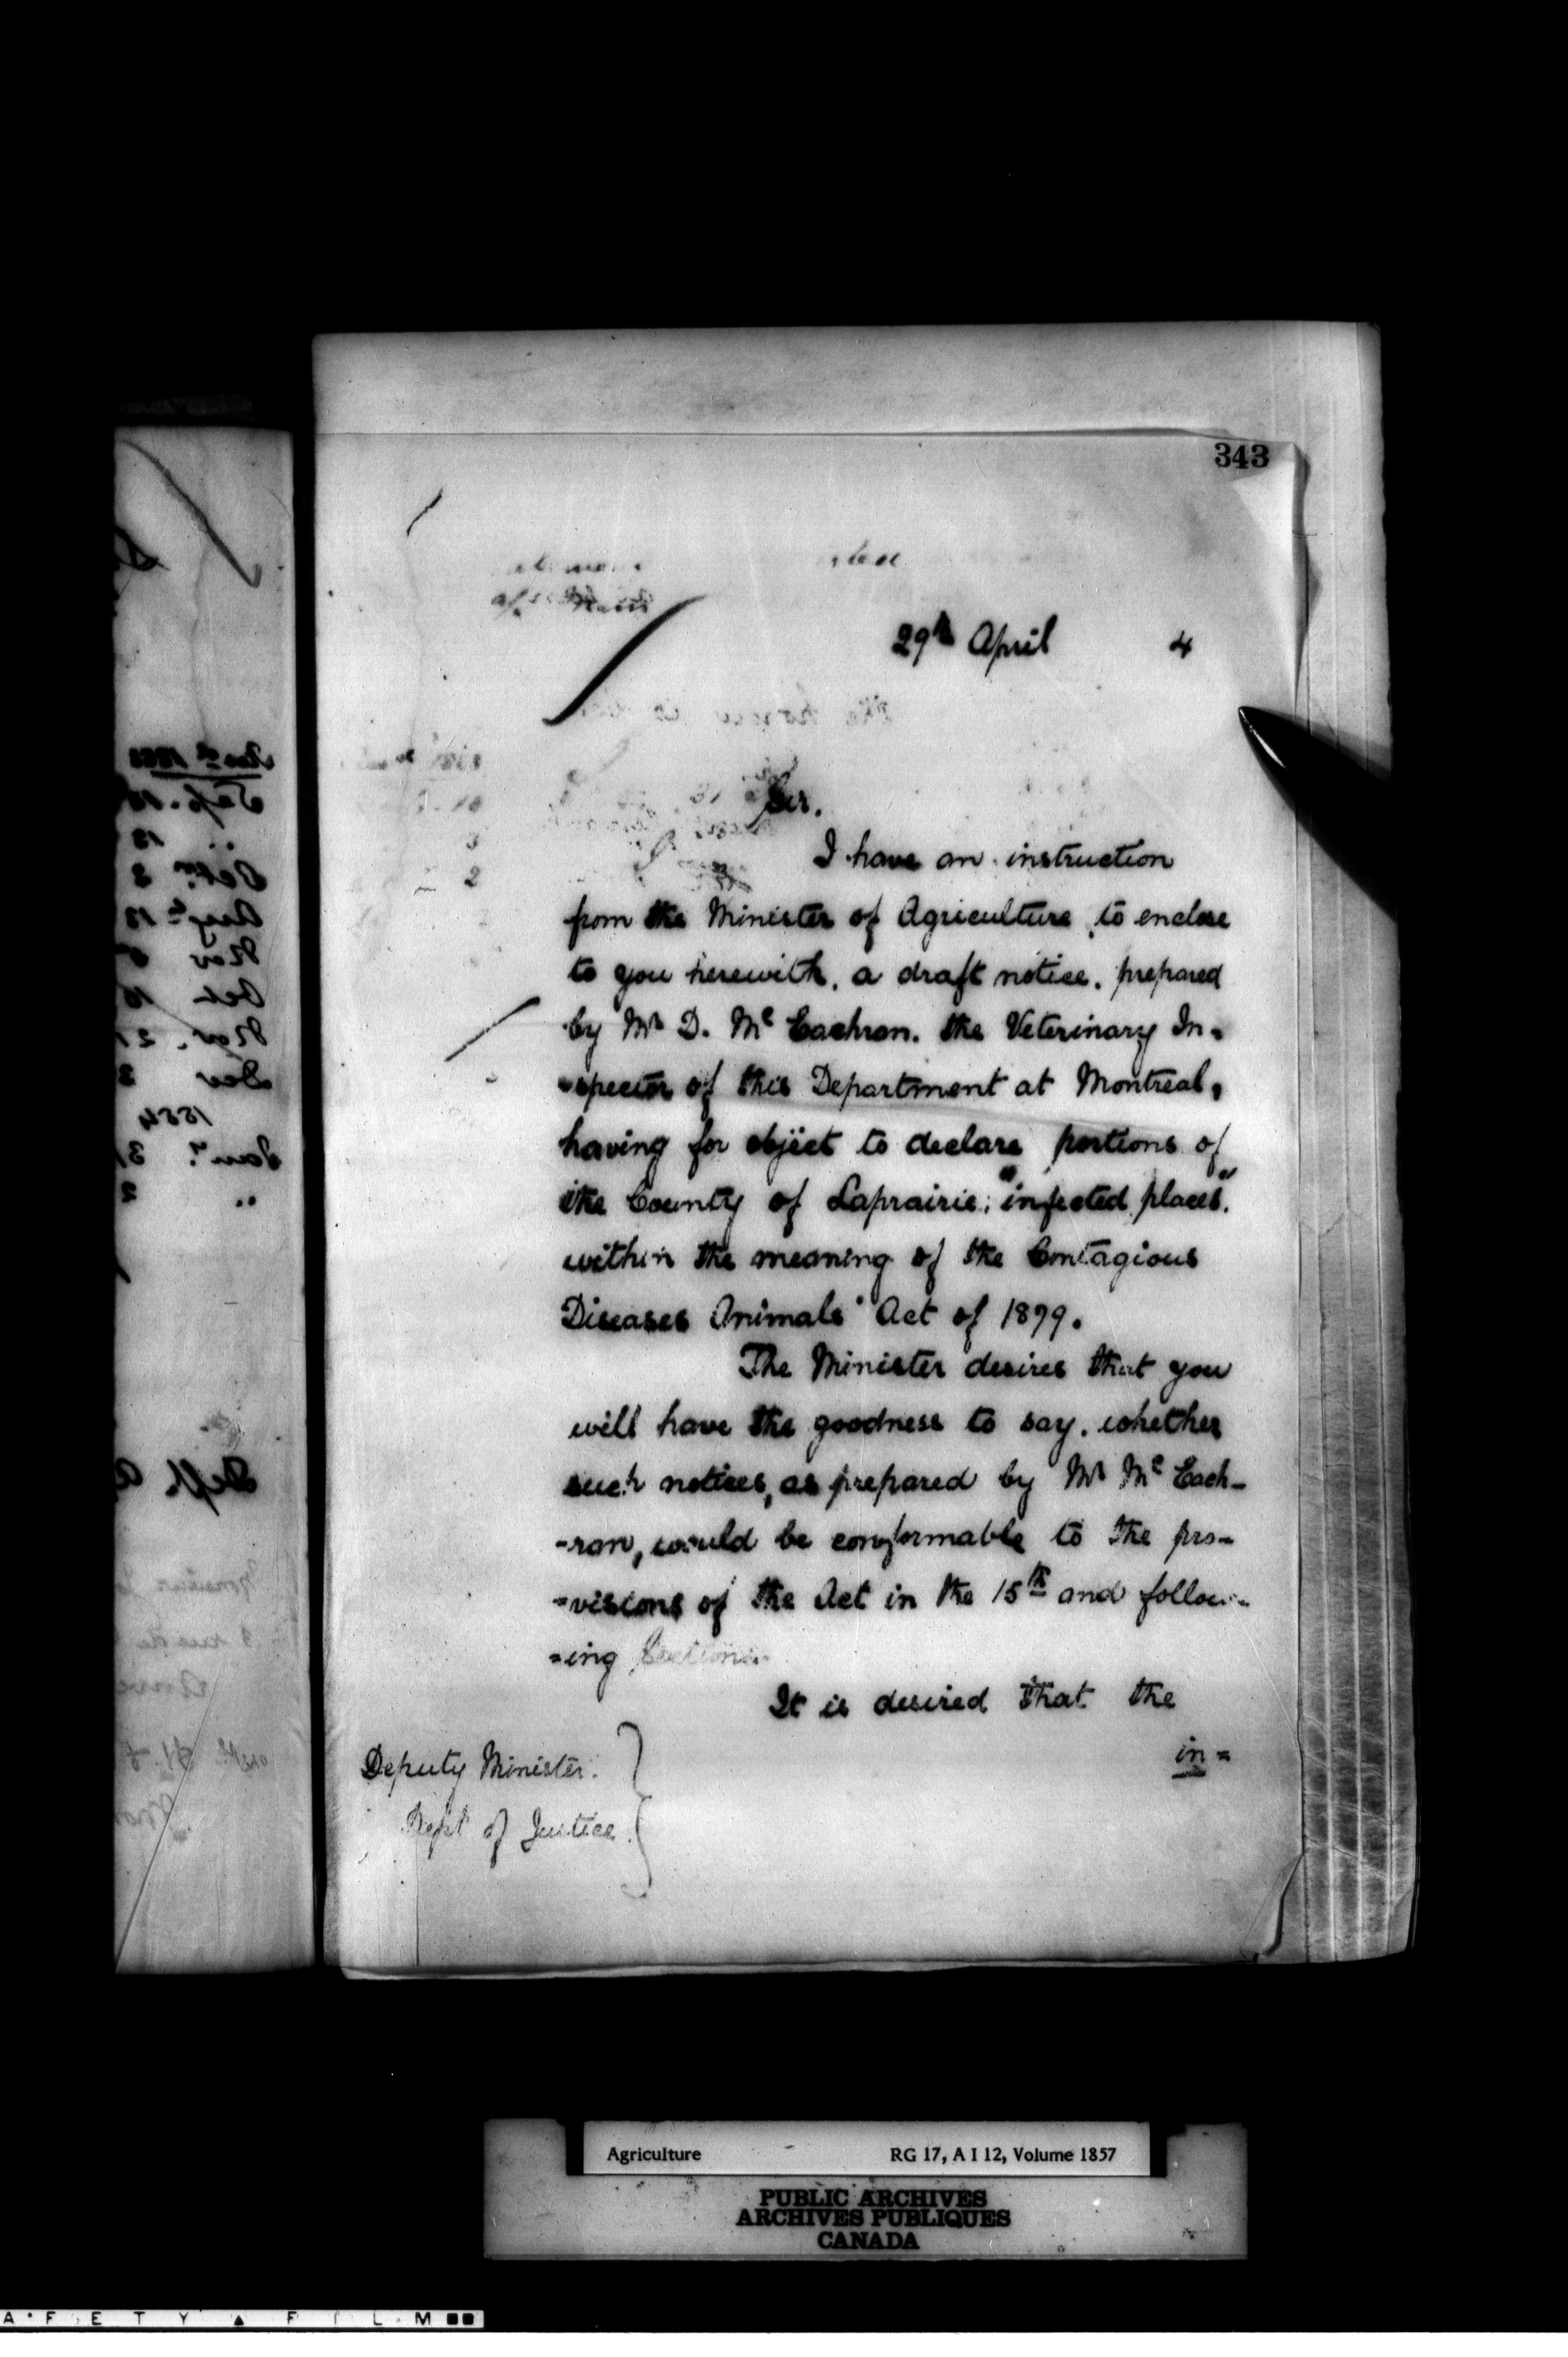 343
29th April 4
Sir.
I have an instruction
from the Minister of Agriculture, to enclose
to you herewith, a draft notice, prepared
by Mr D. Mc Eachran, the Veterinary In-
-spector of this Department at Montreal,
having for object to declare portions of
the County of Laprairie; "infected places",
within the meaning of the Contagious
Diseases Animals' Act of 1879.
The Minister desires that you
will have the goodness to say, whether
such notices, as prepared by Mr Mc Each-
-ran, would be conformable to the pro-
-visions of the Act in the 15th and follow-
-ing Sections.
It is desired that the
in-
Deputy Minister.
Dept of Justice.
Agriculture RG 17, A I 12, Volume 1857
PUBLIC ARCHIVES
ARCHIVES PUBLIQUES
CANADA
A F E T Y ▲ F I L M